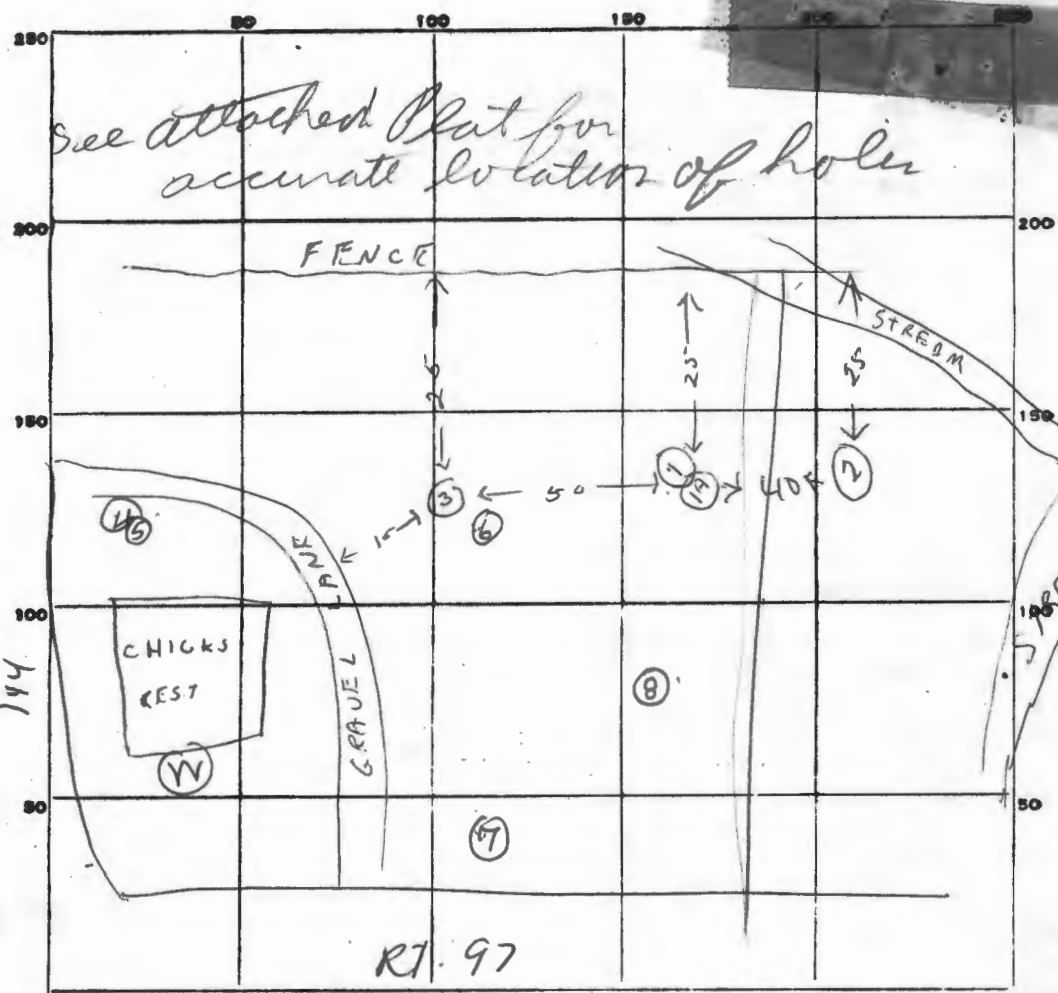 50 100 150 200
250
See attached Plat for
accurate location of holes
200 200
FENCE
STREAM
25 25 25
150 150
1 1A 40 2
3 50
4 5 6
15
GRAVEL LANE
100 100
CHICKS
REST
144
8
W
50 50
7
RT. 97